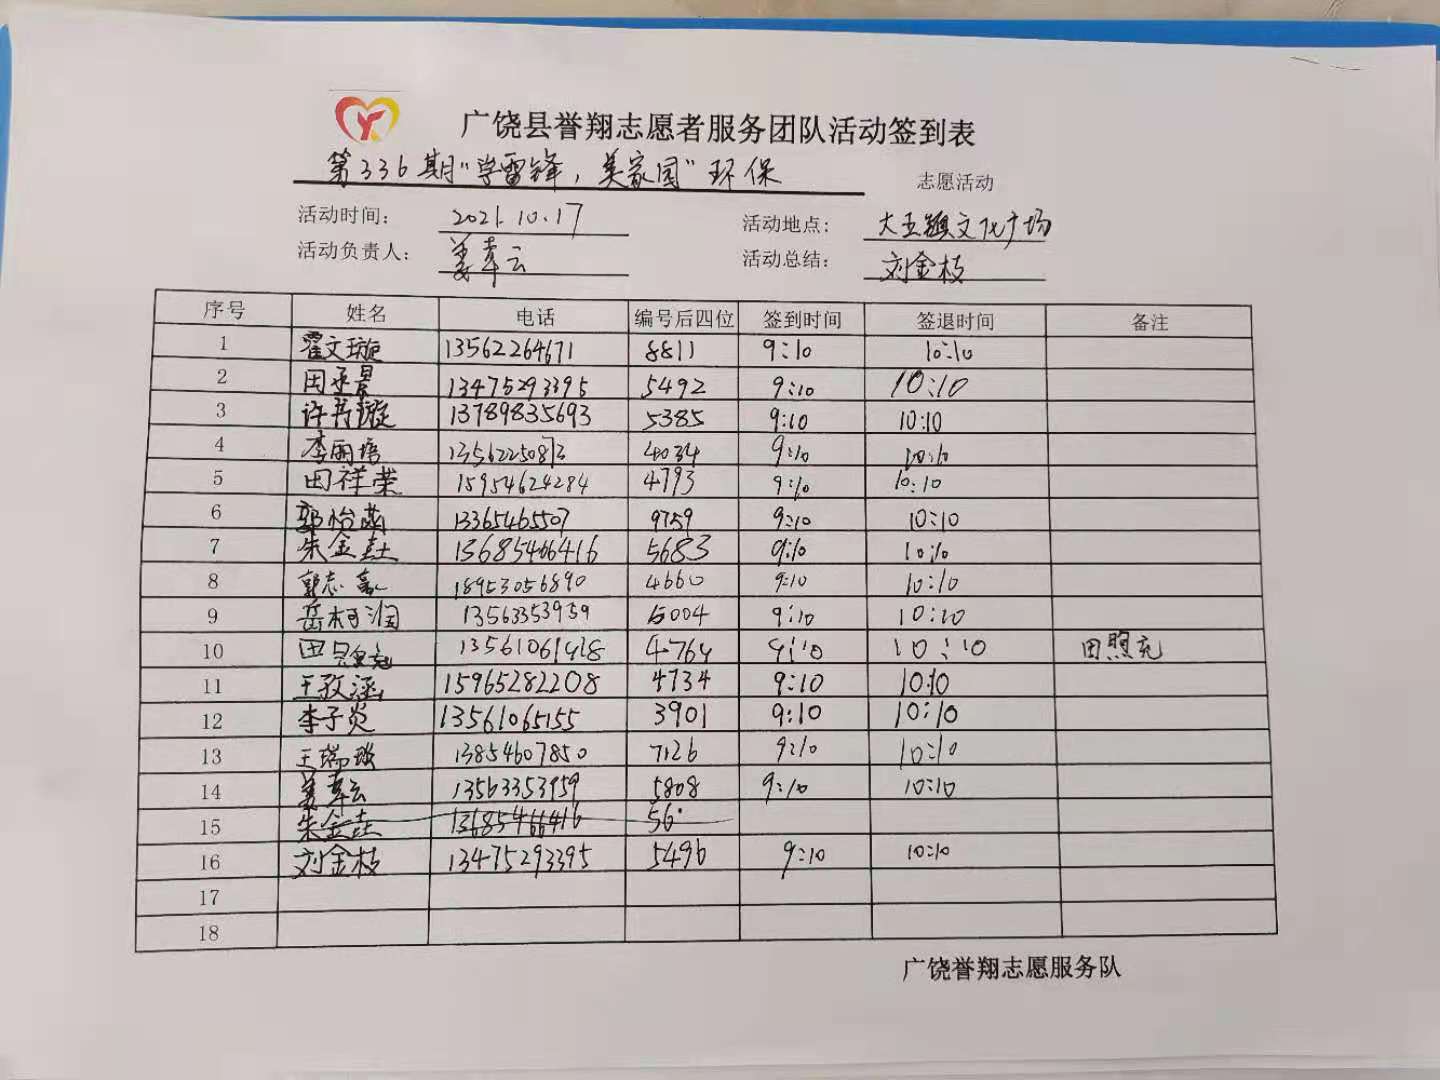 广饶县誉翔志愿者服务团队活动签到表
第336期"学雷锋，美家园"环保 志愿活动
活动时间： 2021.10.17 活动地点： 大王镇文化广场
活动负责人： 姜葦云 活动总结： 刘金枝
序号 姓名 电话 编号后四位 签到时间 签退时间 备注
1 霍文璇 13562264671 8811 9:10 10:10
2 田承昊 13475293395 5492 9:10 10:10
3 许书璇 13789835693 5385 9:10 10:10
4 李雨培 4034 9:10 10:10
5 田祥荣 15954624284 4793 9:10 10:10
6 郭怡菡 13365465507 9759 9:10 10:10
7 朱金垚 13685466416 5683 9:10 10:10
8 郭志 18953056890 4660 9:10 10:10
9 岳柯润 13563353959 6004 9:10 10:10
10 田照充 4764 9:10 10:10 田照充
11 王孜涵 15965282208 4734 9:10 10:10
12 李子炎 13561065155 3901 9:10 10:10
13 王瑞璇 13854607850 7126 9:10 10:10
14 姜葦云 13563353959 5808 9:10 10:10
15 朱金垚 13685466416 56
16 刘金枝 13475293395 5496 9:10 10:10
17
18
广饶誉翔志愿服务队